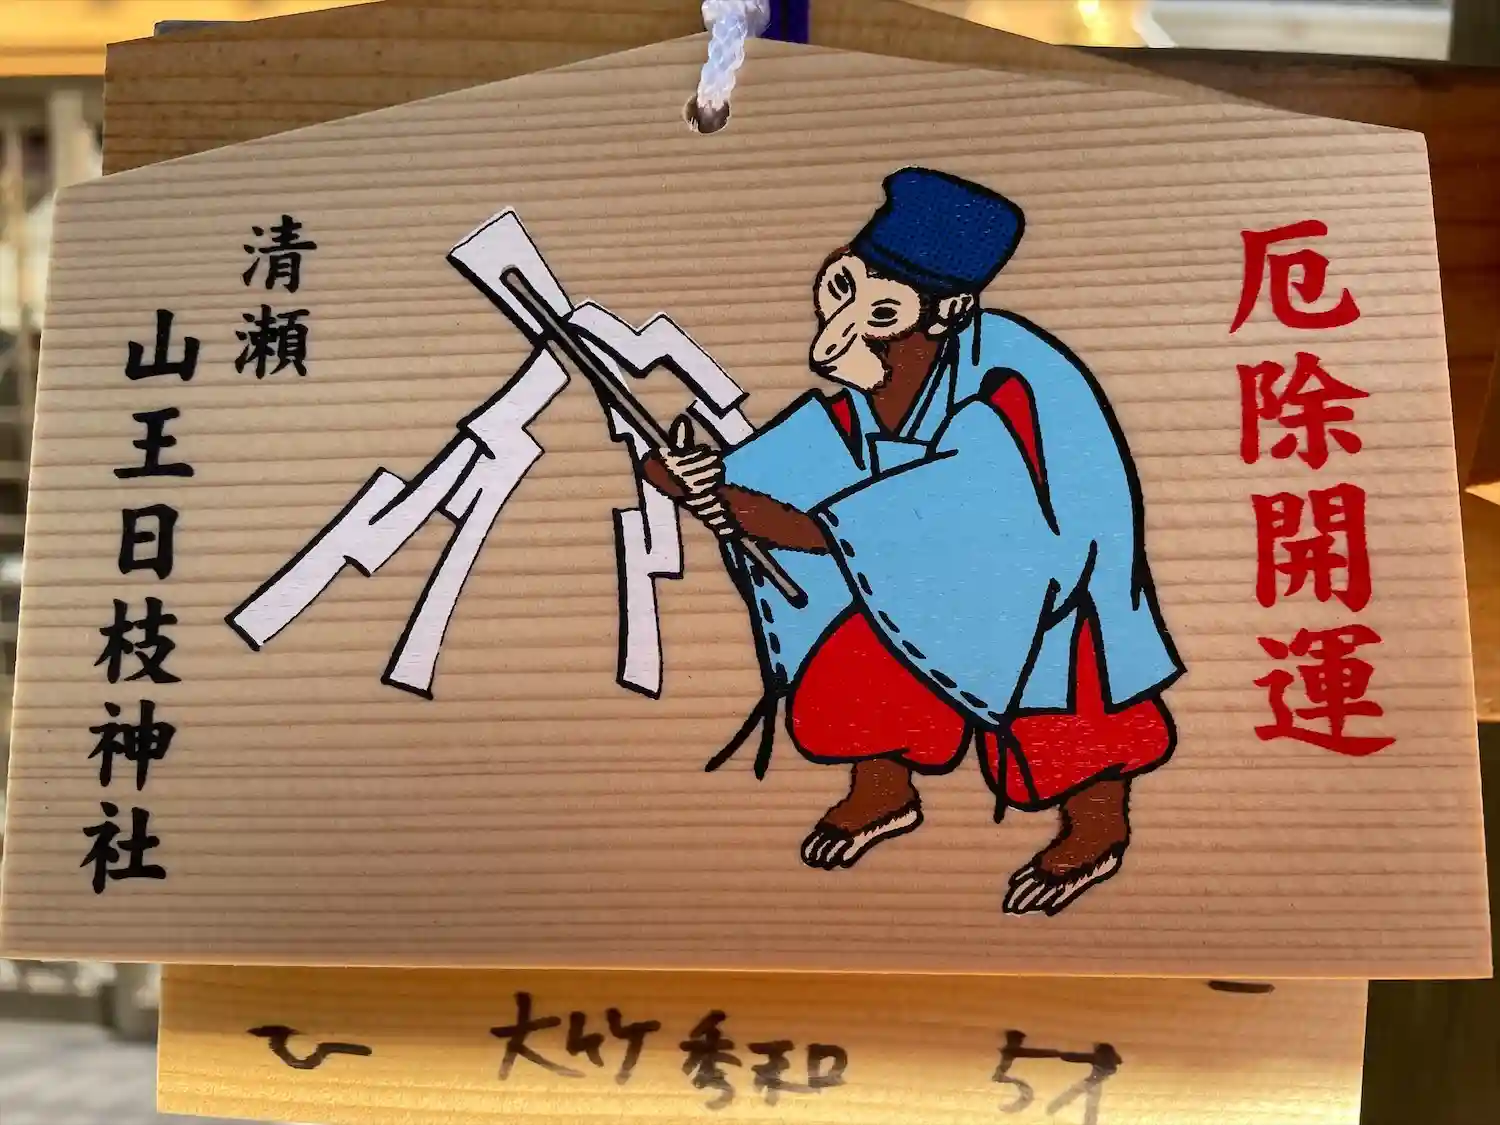 厄除開運
清瀬
山王日枝神社
大竹秀和
5才